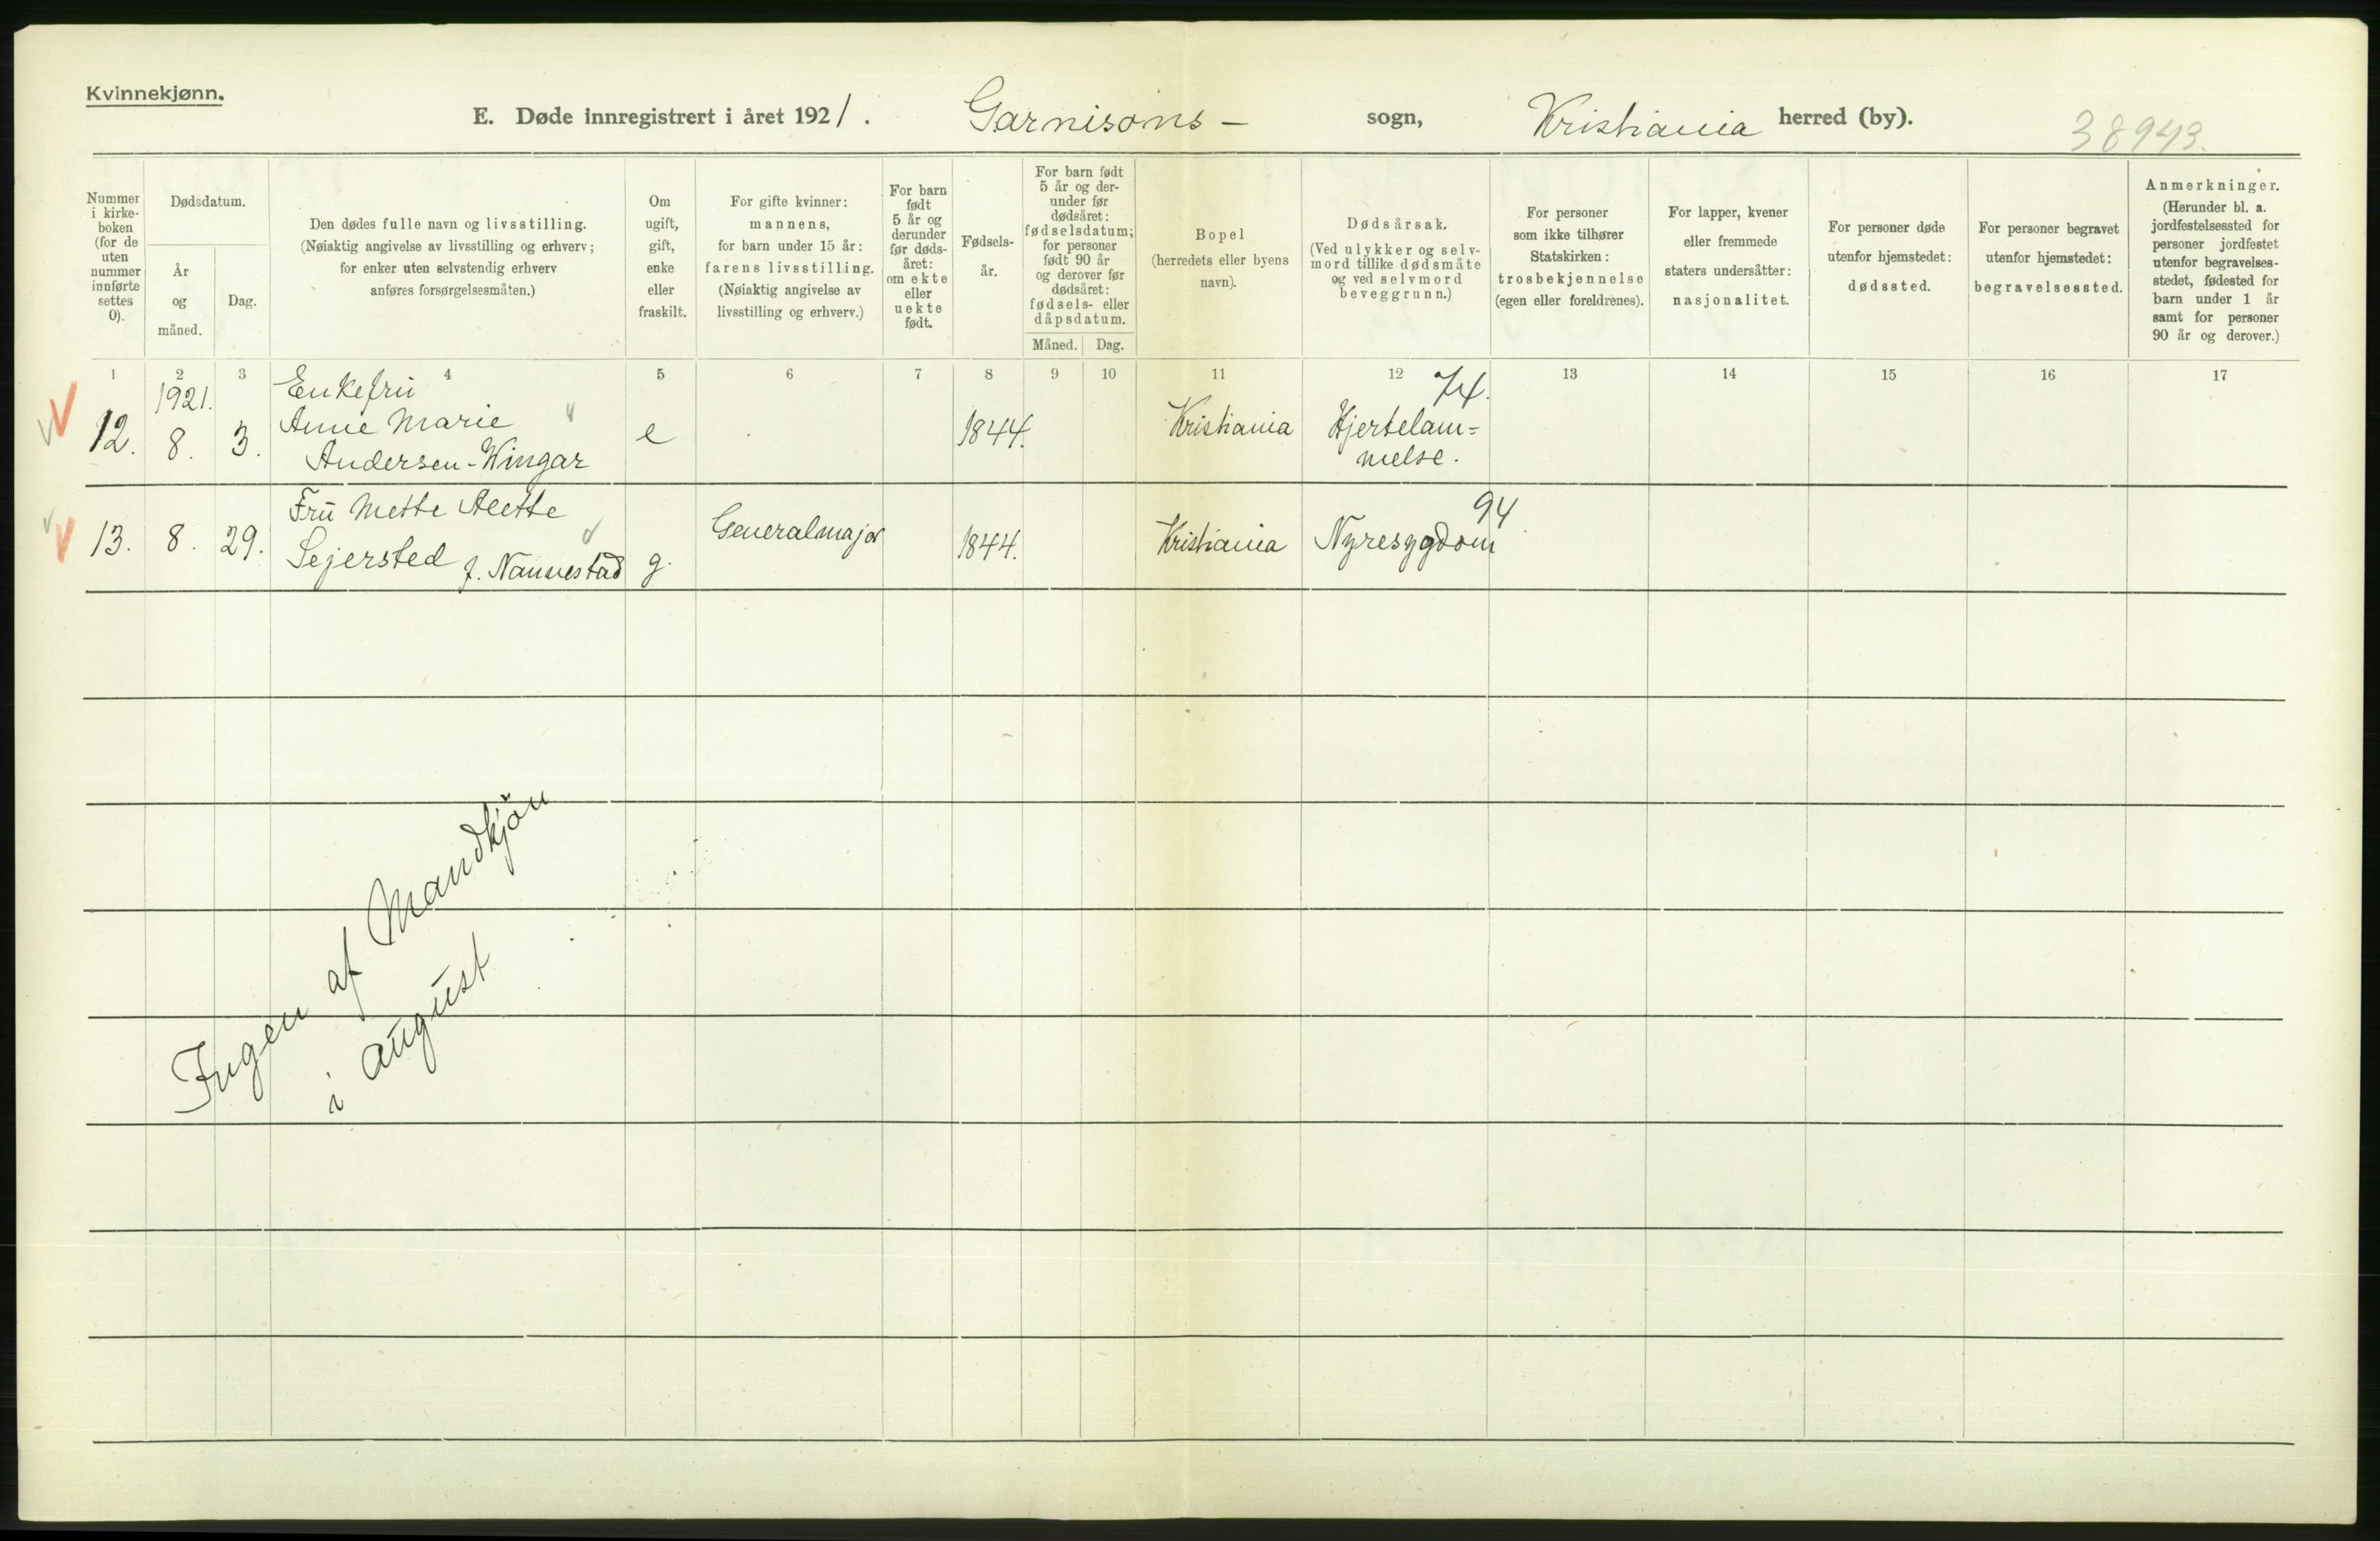 Kvinnekjønn.
E. Døde innregistrert i året 1921. Garnisons- sogn, Kristiania herred (by). 38943.
Nummer
i kirke-
boken
(for de
uten
nummer
innførte
settes
0).
Dødsdatum.
År
og
måned.
Dag.
Den dødes fulle navn og livsstilling.
(Nøiaktig angivelse av livsstilling og erhverv;
for enker uten selvstendig erhverv
anføres forsørgelsesmåten.)
Om
ugift,
gift,
enke
eller
fraskilt.
For gifte kvinner:
mannens,
for barn under 15 år:
farens livsstilling.
(Nøiaktig angivelse av
livsstilling og erhverv.)
For barn
født
5 år og
derunder
før døds-
året:
om ekte
eller
uekte
født.
Fødsels-
år.
For barn født
5 år og der-
under før
dødsåret:
fødselsdatum;
for personer
født 90 år
og derover før
dødsåret:
fødsels- eller
dåpsdatum.
Måned. Dag.
Bopel
(herredets eller byens
navn).
Dødsårsak.
(Ved ulykker og selv-
mord tillike dødsmåte
og ved selvmord
beveggrunn.)
For personer
som ikke tilhører
Statskirken:
trosbekjennelse
(egen eller foreldrenes).
For lapper, kvener
eller fremmede
staters undersåtter:
nasjonalitet.
For personer døde
utenfor hjemstedet:
dødssted.
For personer begravet
utenfor hjemstedet:
begravelsessted.
Anmerkninger.
(Herunder bl. a.
jordfestelsessted for
personer jordfestet
utenfor begravelses-
stedet, fødested for
barn under 1 år
samt for personer
90 år og derover.)
1 2 3 4 5 6 7 8 9 10 11 12 13 14 15 16 17
1921. Enkefru 74.
12. 8. 3. Anne Marie e 1844. Kristiania Hjertelam=
Andersen-Wingar melse.
Fru Mette Alette 94
13. 8. 29. Sejersted f. Nannestad g. Generalmajor 1844. Kristiania Nyresygdom
Ingen af Mandkjøn
i august